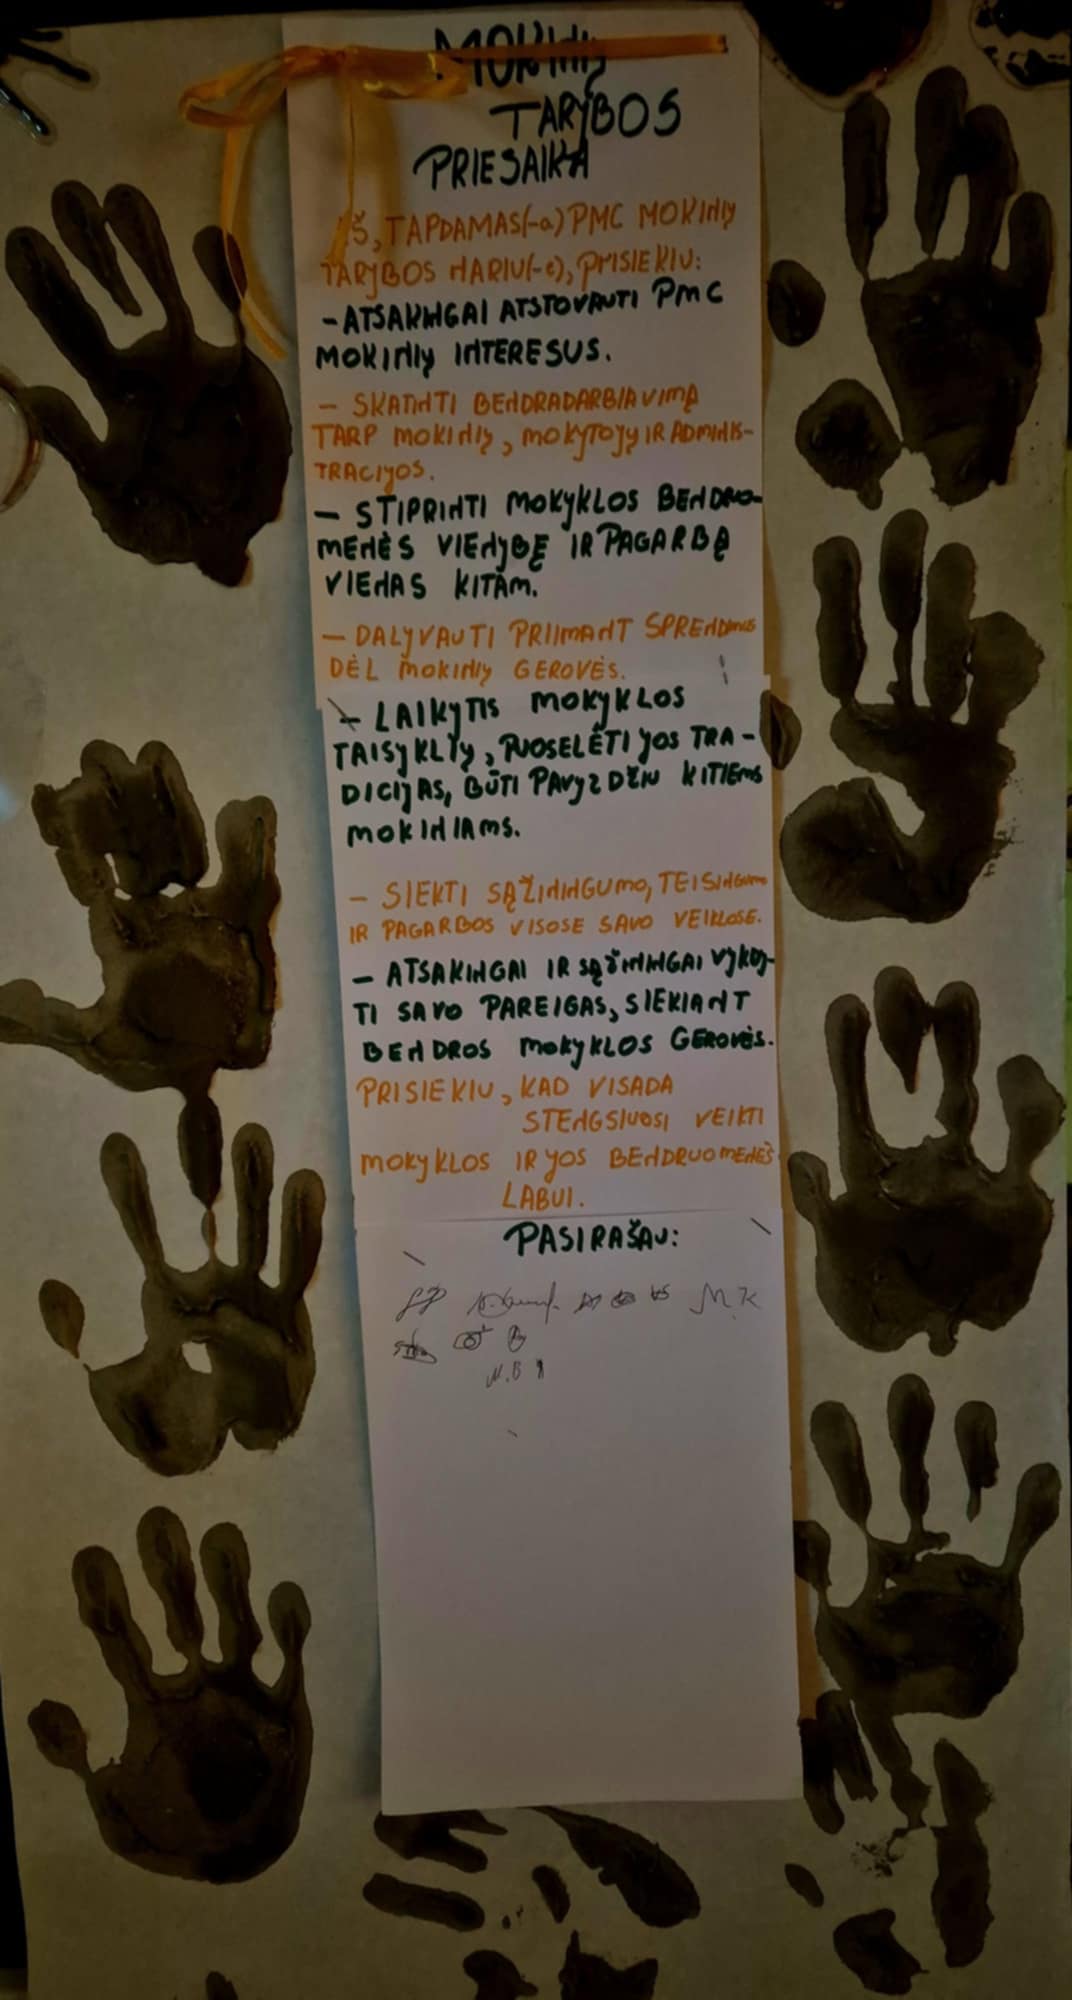 MOKINIŲ
TARYBOS
PRIESAIKA
AŠ, TAPDAMAS(-a) PMC MOKINIŲ
TARYBOS NARIU(-e), PRISIEKIU:
- ATSAKINGAI ATSTOVAUTI PMC
MOKINIŲ INTERESUS.
- SKATINTI BENDRADARBIAVIMĄ
TARP MOKINIŲ, MOKYTOJŲ IR ADMINIS-
TRACIJOS.
- STIPRINTI MOKYKLOS BENDRUO-
MENĖS VIENYBĘ IR PAGARBĄ
VIENAS KITAM.
- DALYVAUTI PRIIMANT SPRENDIMUS
DĖL MOKINIŲ GEROVĖS.
- LAIKYTIS MOKYKLOS
TAISYKLIŲ, PUOSELĖTI JOS TRA-
DICIJAS, BŪTI PAVYZDŽIU KITIEMS
MOKINIAMS.
- SIEKTI SĄŽININGUMO, TEISINGUMO
IR PAGARBOS VISOSE SAVO VEIKLOSE.
- ATSAKINGAI IR SĄŽININGAI VYKDY-
TI SAVO PAREIGAS, SIEKIANT
BENDROS MOKYKLOS GEROVĖS.
PRISIEKIU, KAD VISADA
STENGSIUOSI VEIKTI
MOKYKLOS IR JOS BENDRUOMENĖS
LABUI.
PASIRAŠAU:
M.K
N.B